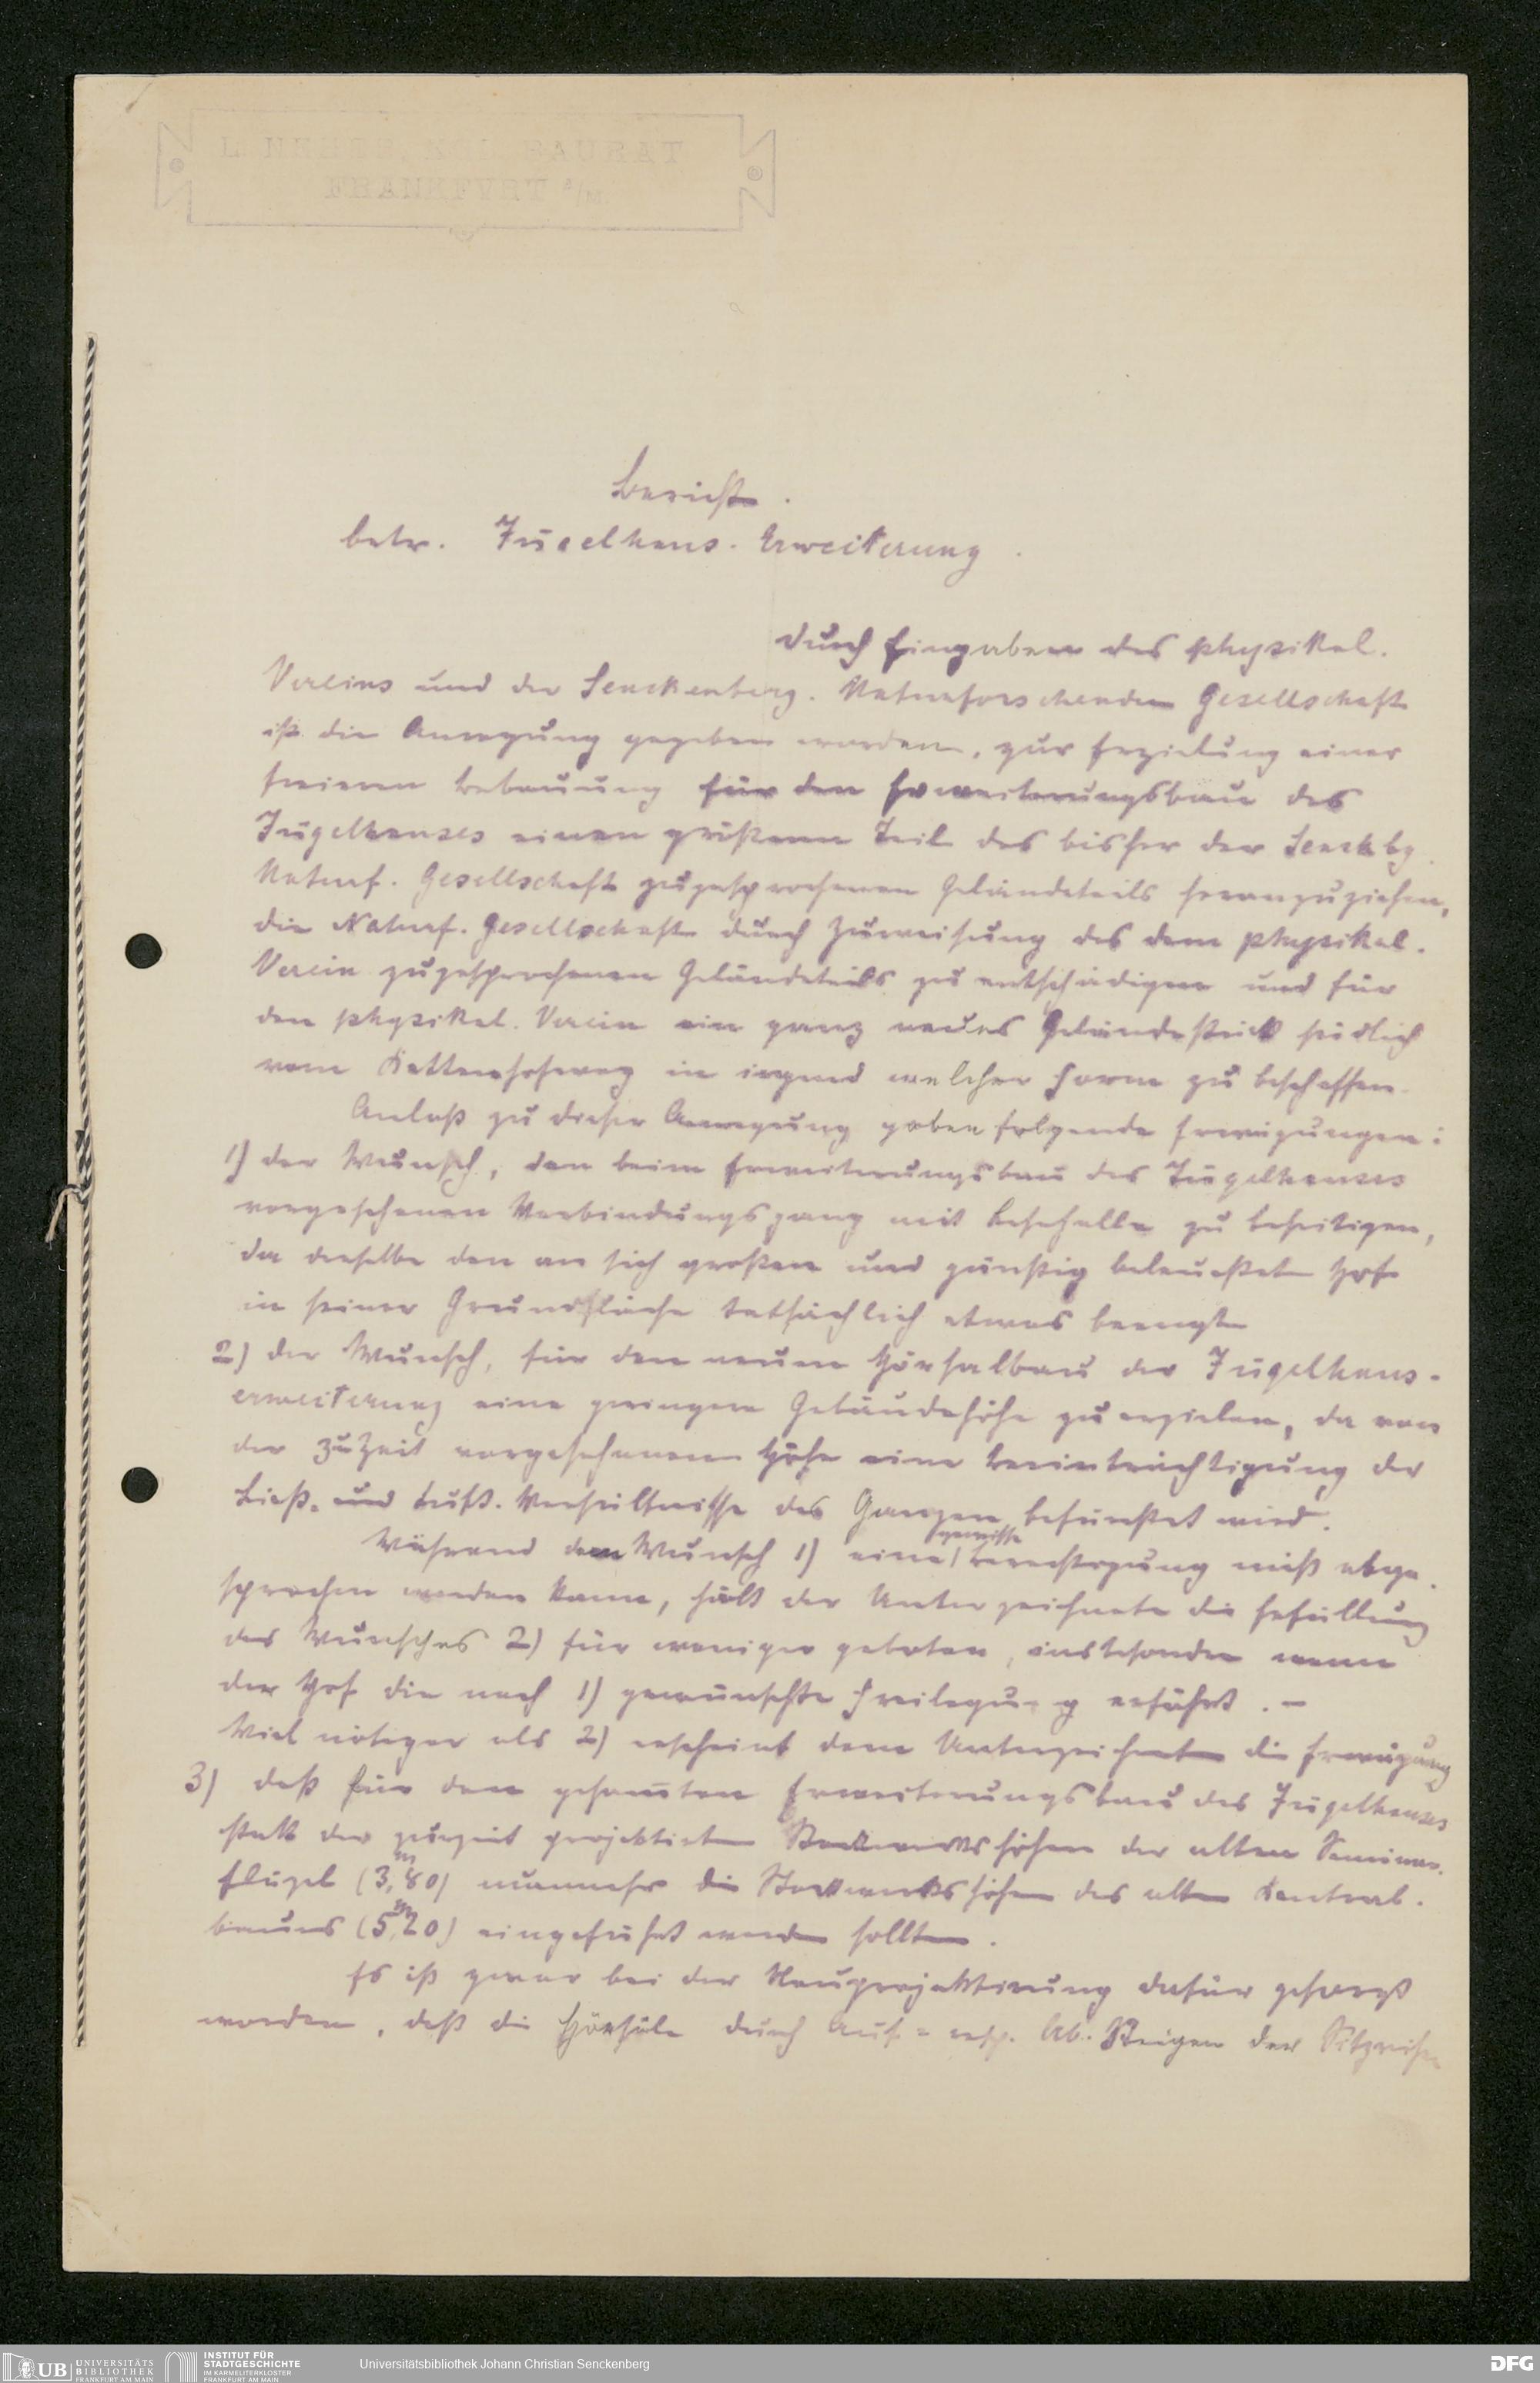 L. NEHER, KGL. BAURAT
FRANKFVRT a/M.
Bericht.
betr. Jügelhaus-Erweiterung.
Durch Eingaben des physikal.
Vereins und der Senckenberg. Naturforschenden Gesellschaft
ist die Anregung gegeben worden, zur Erzielung einer
freieren Bebauung für den Erweiterungsbau des
Jügelhauses einen größeren Teil des bisher der Senckbg.
Naturf. Gesellschaft zugesprochenen Geländeteils heranzuziehen,
die Naturf. Gesellschaft durch Zuweisung des dem physikal.
Verein zugesprochenen Geländeteils zu entschädigen und für
den physikal. Verein ein ganz neues Geländestück südlich
vom Kettenhofweg in irgend welcher Form zu beschaffen.
Anlaß zu dieser Anregung gaben folgende Erwägungen:
1) der Wunsch, den beim Erweiterungsbau des Jügelhauses
vorgesehenen Verbindungsgang mit Lesehalle zu beseitigen,
da derselbe den an sich großen und günstig beleuchteten Hof
in seiner Grundfläche tatsächlich etwas beengte
2) der Wunsch, für den neuen Hörsalbau der Jügelhaus-
erweiterung eine geringere Gebäudehöhe zu erzielen, da von
der zuzeit vorgesehenen Höhe eine Beeinträchtigung der
Licht- und Luft-Verhältnisse des Ganzen befürchtet wird.
Während dem Wunsch 1) eine gewisse Berechtigung nicht abge-
sprochen werden kann, hält der Unterzeichnete die Erfüllung
des Wunsches 2) für weniger geboten, insbesondere wenn
der Hof die nach 1) gewünschte Freilegung erfährt. –
Viel nötiger als 2) erscheint dem Unterzeichneten die Erwägung
3) daß für den gesamten Erweiterungsbau des Jügelhauses
statt der zurzeit projektierten Stockwerkshöhen der alten Seminar-
flügel (3,80 m) nunmehr die Stockwerkshöhen des alten Kentral-
baues (5,20 m) eingeführt werden sollten.
Es ist zwar bei der Neuprojektierung dafür gesorgt
worden, daß die Hörsäle durch Auf- resp. Ab-Steigen der Sitzreihen
UB UNIVERSITÄTS BIBLIOTHEK FRANKFURT AM MAIN
INSTITUT FÜR STADTGESCHICHTE IM KARMELITERKLOSTER FRANKFURT AM MAIN
Universitätsbibliothek Johann Christian Senckenberg
DFG